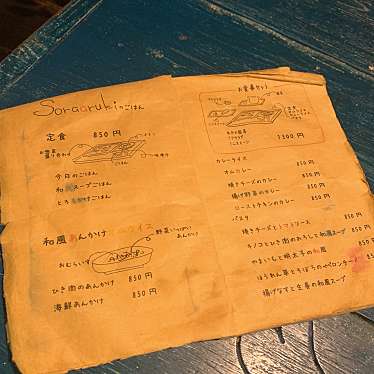 Soraarukiのごはん
定食 850円
今日のごはん
和風スープごはん
とろろかけごはん
和風あんかけ
野菜いっぱい
あんかけ
おむらいす
850円
ひき肉のあんかけ 850円
海鮮あんかけ 850円
お食事セット
1300円
カレーライス 850円
オムカレー 850円
焼きチーズのカレー 850円
揚げ野菜のカレー 850円
ローストチキンのカレー 850円
パスタ
焼きチーズとトマトソース 850円
キノコとひき肉のおろしと和風スープ 850円
やまいもと明太子の和風 850円
ほうれん草とごぼうのペペロンチーノ 850円
揚げなすと生姜の和風スープ 850円